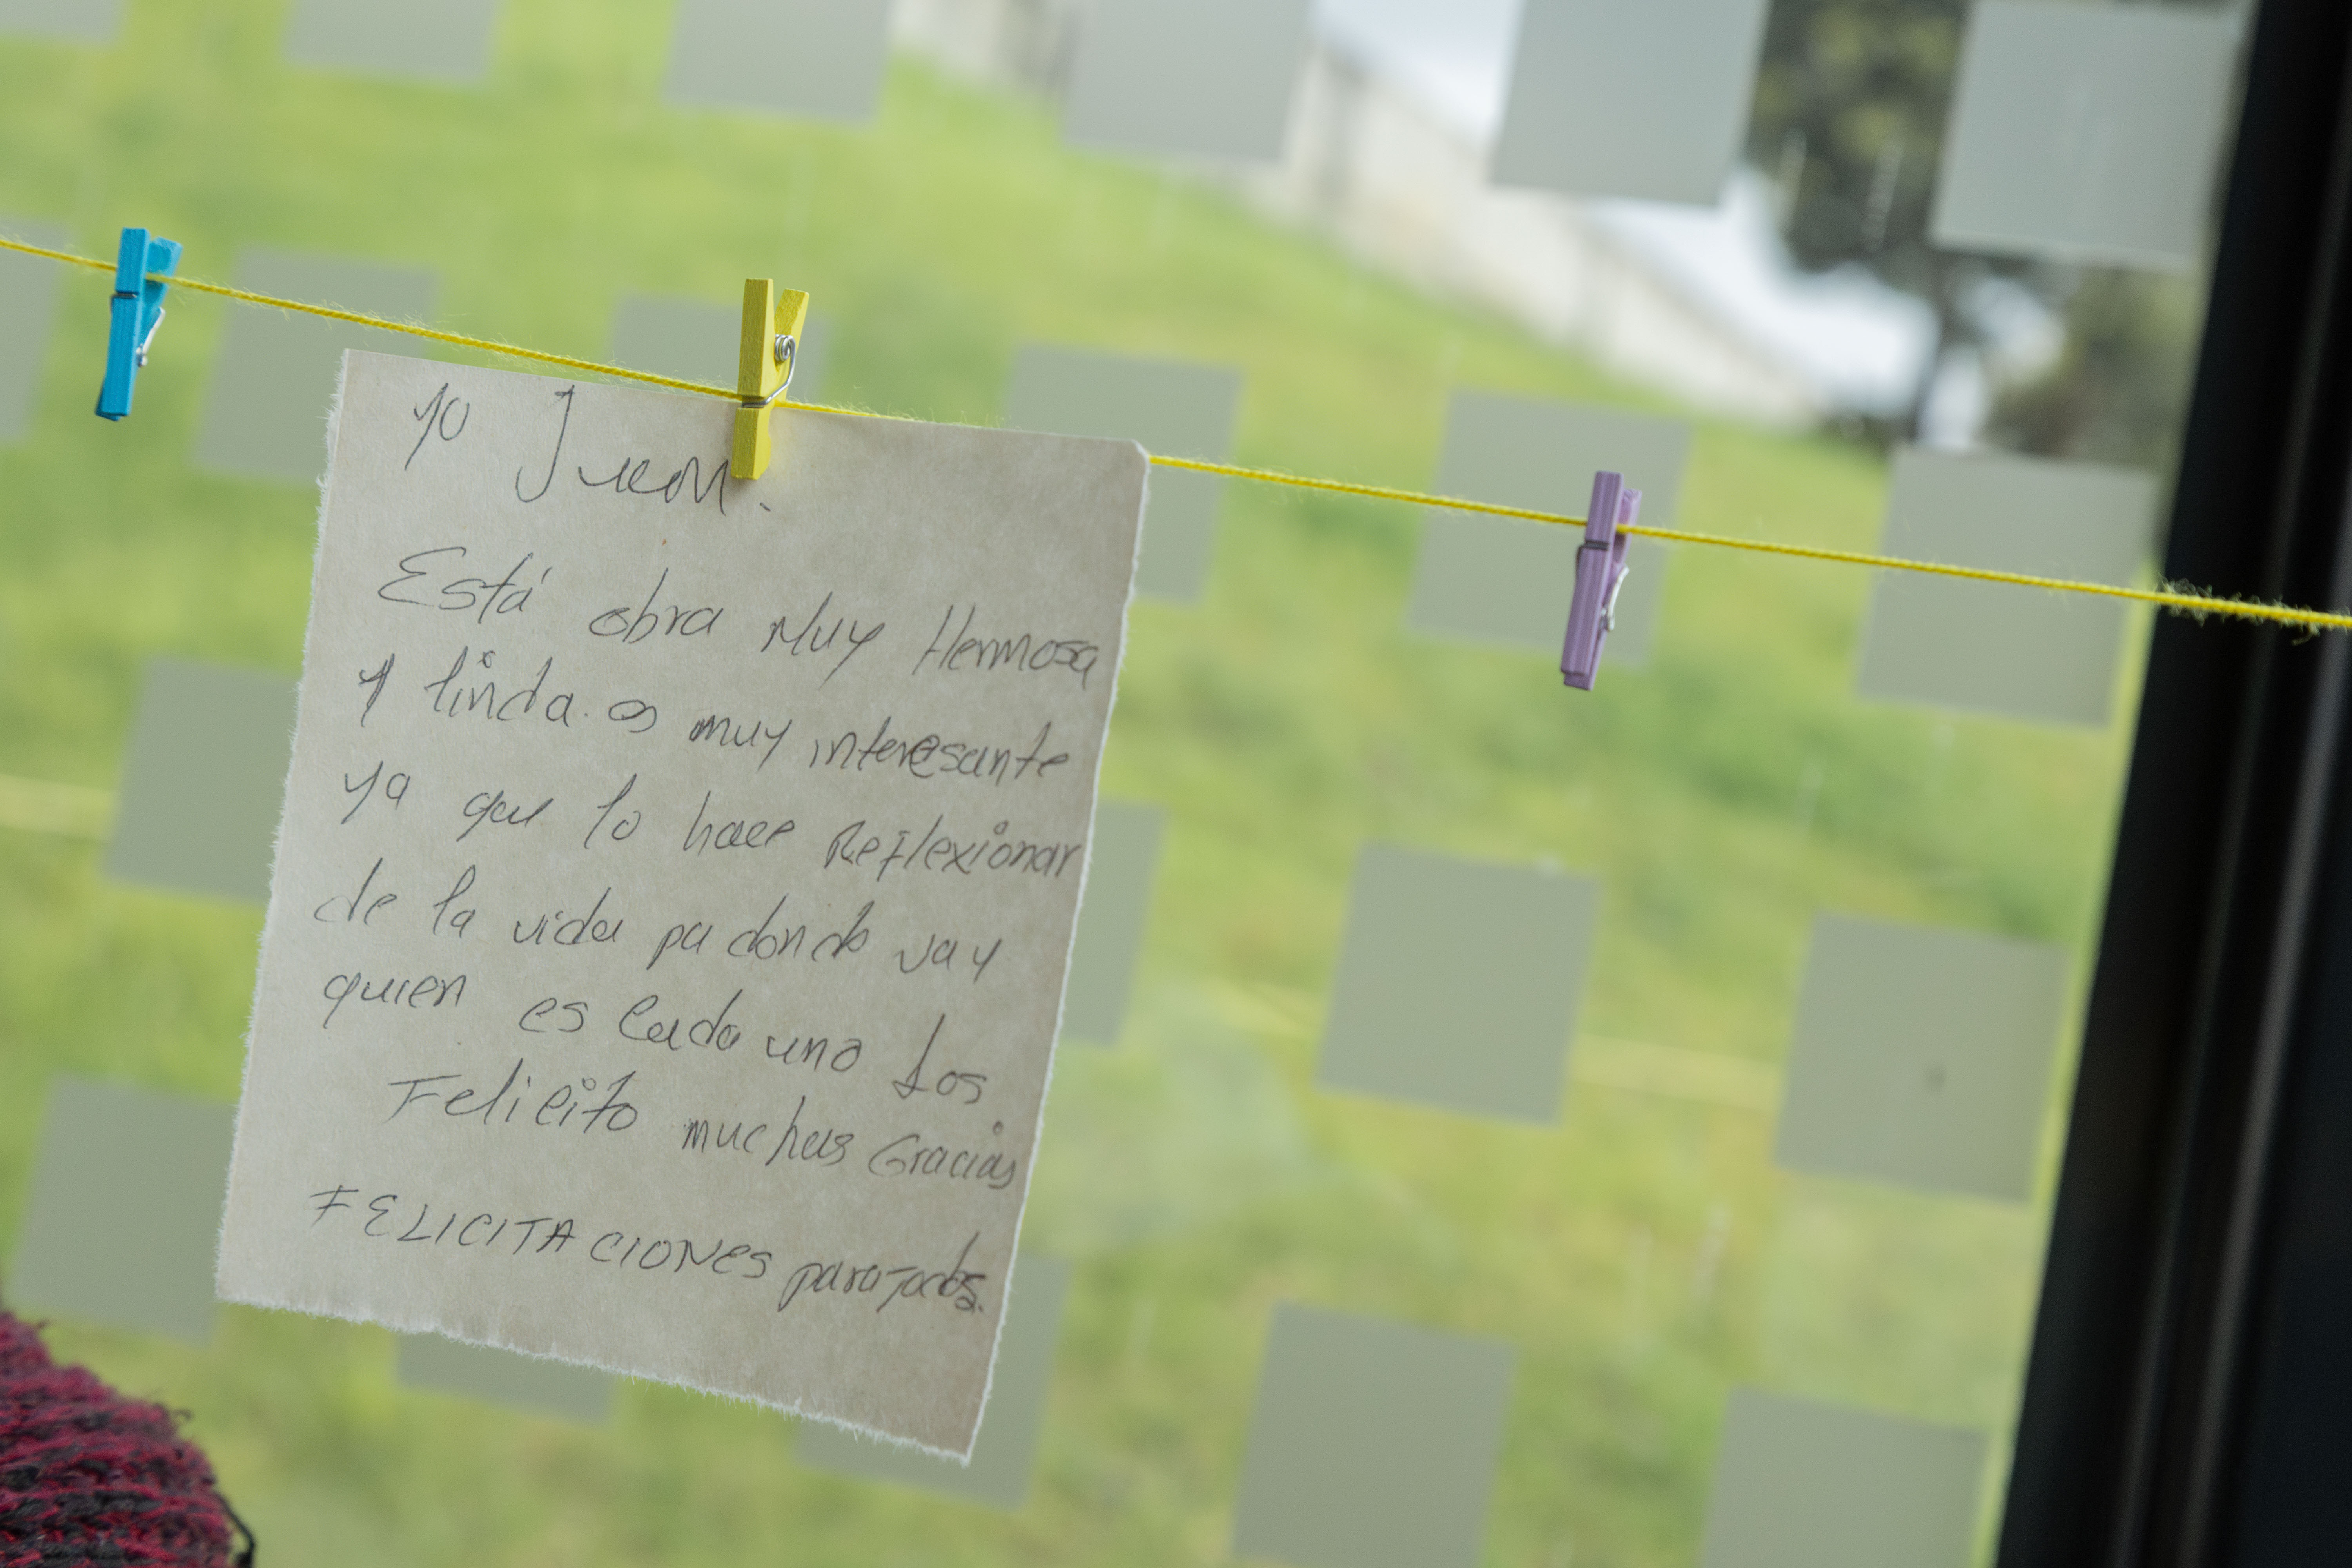 yo Juan.
Está obra Muy Hermosa
y linda. es muy interesante
ya que lo hace Reflexionar
de la vida pa donde va y
quien es cada uno Los
Felicito muchas Gracias
FELICITACIONES para todos.